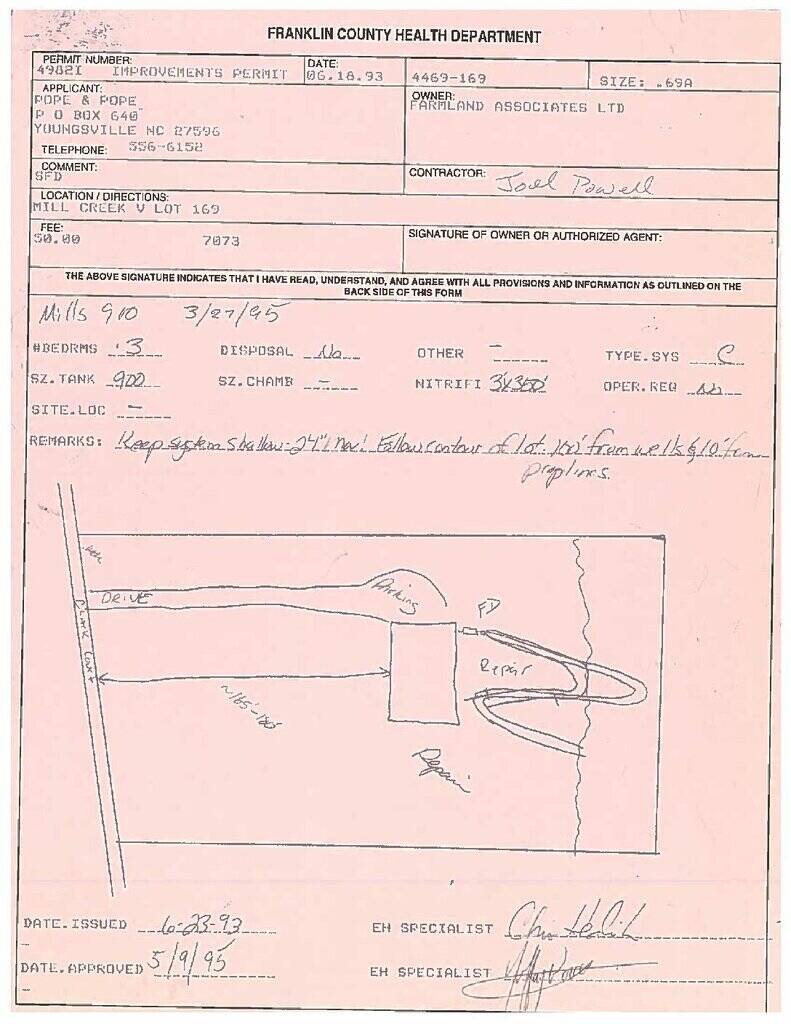 FRANKLIN COUNTY HEALTH DEPARTMENT
PERMIT NUMBER: DATE:
4982I IMPROVEMENTS PERMIT 06.18.93 4469-169 SIZE: .69A
APPLICANT: OWNER:
POPE & POPE FARMLAND ASSOCIATES LTD
P O BOX 640
YOUNGSVILLE NC 27596
TELEPHONE: 556-6152
COMMENT:
SFD CONTRACTOR: Joel Powell
LOCATION / DIRECTIONS:
MILL CREEK V LOT 169
FEE:
50.00 7073 SIGNATURE OF OWNER OR AUTHORIZED AGENT:
THE ABOVE SIGNATURE INDICATES THAT I HAVE READ, UNDERSTAND, AND AGREE WITH ALL PROVISIONS AND INFORMATION AS OUTLINED ON THE
BACK SIDE OF THIS FORM
Mills 910 3/27/95
#BEDRMS 3 DISPOSAL No OTHER - TYPE.SYS C
SZ.TANK 900 SZ.CHAMB - NITRIFI 3'X350' OPER.REQ No
SITE.LOC -
REMARKS: Keep system shallow-24" Max! Follow contour of lot. 100' from wells & 10' from
proplines.
DRIVE
Parking
FD
Repair
Court
~165'-180'
Repair
DATE.ISSUED 6-23-93 EH SPECIALIST
DATE.APPROVED 5/9/95 EH SPECIALIST